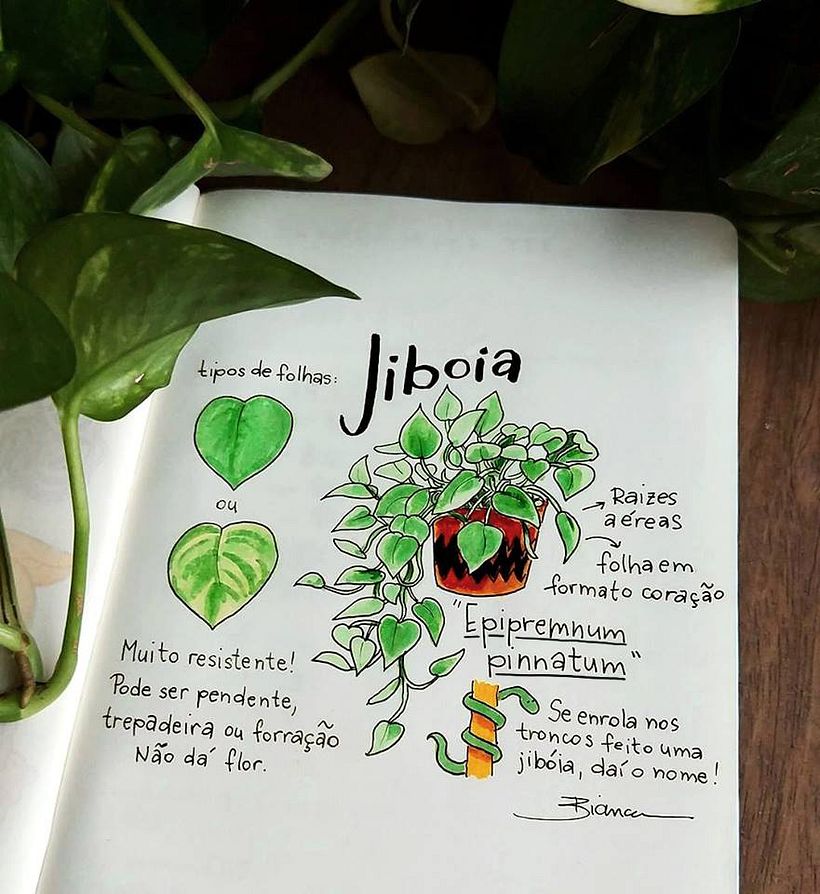 Jiboia
tipos de folhas:
ou
Raizes
aéreas
folha em
formato coração
"Epipremnum
pinnatum"
Muito resistente!
Pode ser pendente,
trepadeira ou forração
Não dá flor.
Se enrola nos
troncos feito uma
jibóia, daí o nome!
Bianca